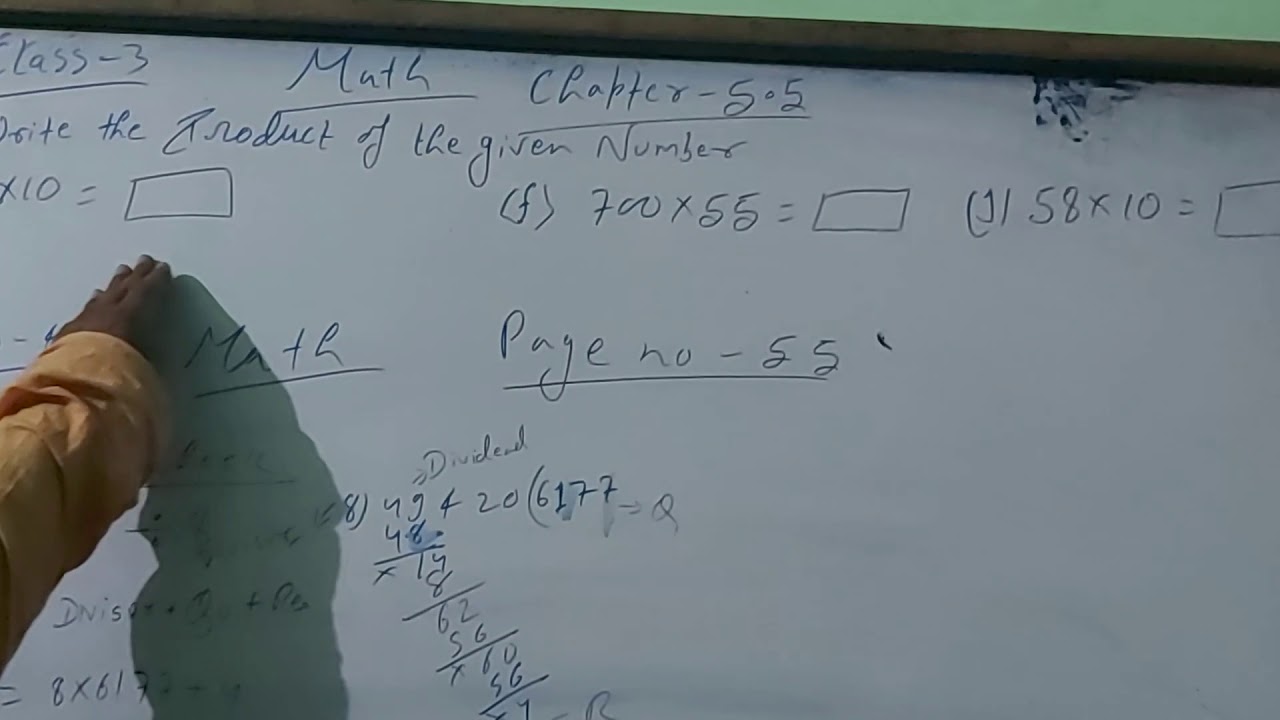 Class-3 Math Chapter-5.5
Write the Product of the given Number
×10 = (f) 700×55 = (J) 58×10 =
Math Page no - 55
Dividend
8) 494 20(6177 → Q
48
× 14
8
62
56
× 60
56
= 8×617
4 = R